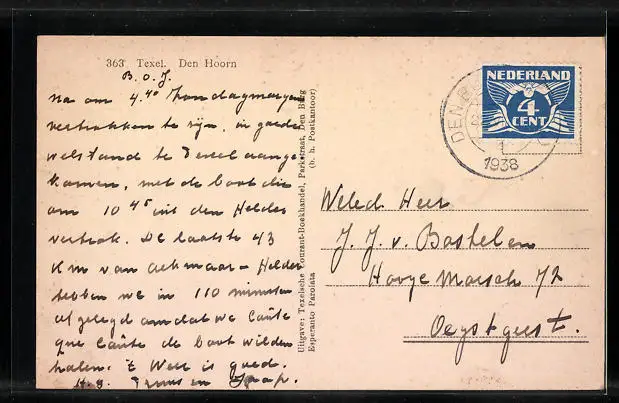 363 Texel. Den Hoorn
B. O. J.
Na om 4.40 Zondagmorgen
vertrokken te zijn, in goede
welstand te Texel aange
komen, met de boot die
om 10 45 uit den Helder
vertrok. De laatste 43
Km van Alkmaar - Helder
hebben we in 110 minuten
afgelegd omdat we coûte
que coûte de boot wilden
halen. 't Weer is goed.
H. g. Truus en Jaap.
Uitgave: Texelsche Courant-Boekhandel, Parkstraat, Den Burg
(b. h. Postkantoor)
Esperanto Parolata
NEDERLAND
4
CENT
DEN B
1938
Weled Heer
J. J. v. Bostelen
Hooge Morsch 72
Oegstgeest.